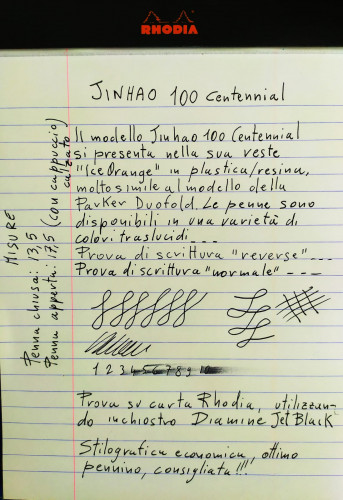 RHODIA
JINHAO 100 Centennial
Il modello Jinhao 100 Centennial
si presenta nella sua veste
"IceOrange" in plastica/resina,
molto simile al modello della
Parker Duofold. Le penne sono
disponibili in una varietà di
colori traslucidi...
Prova di scrittura "reverse"...
Prova di scrittura "normale" ---
1 2 3 4 5 6 7 8 9 10
Prova su carta Rhodia, utilizzan-
do inchiostro Diamine Jet Black
Stilografica economica, ottimo
pennino, consigliata!!!
MISURE
Penna chiusa: 13,5
Penna apperta: 17,5 (con cappuccio)
calzato